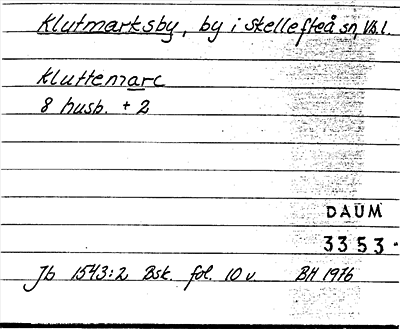 Klutmarksby, by i Skellefteå sn, Vb.l.
Kluttemarc
8 husb. + 2
DAUM
3353
Jb 1543:2 Bsk. fol. 10 v. BH 1976